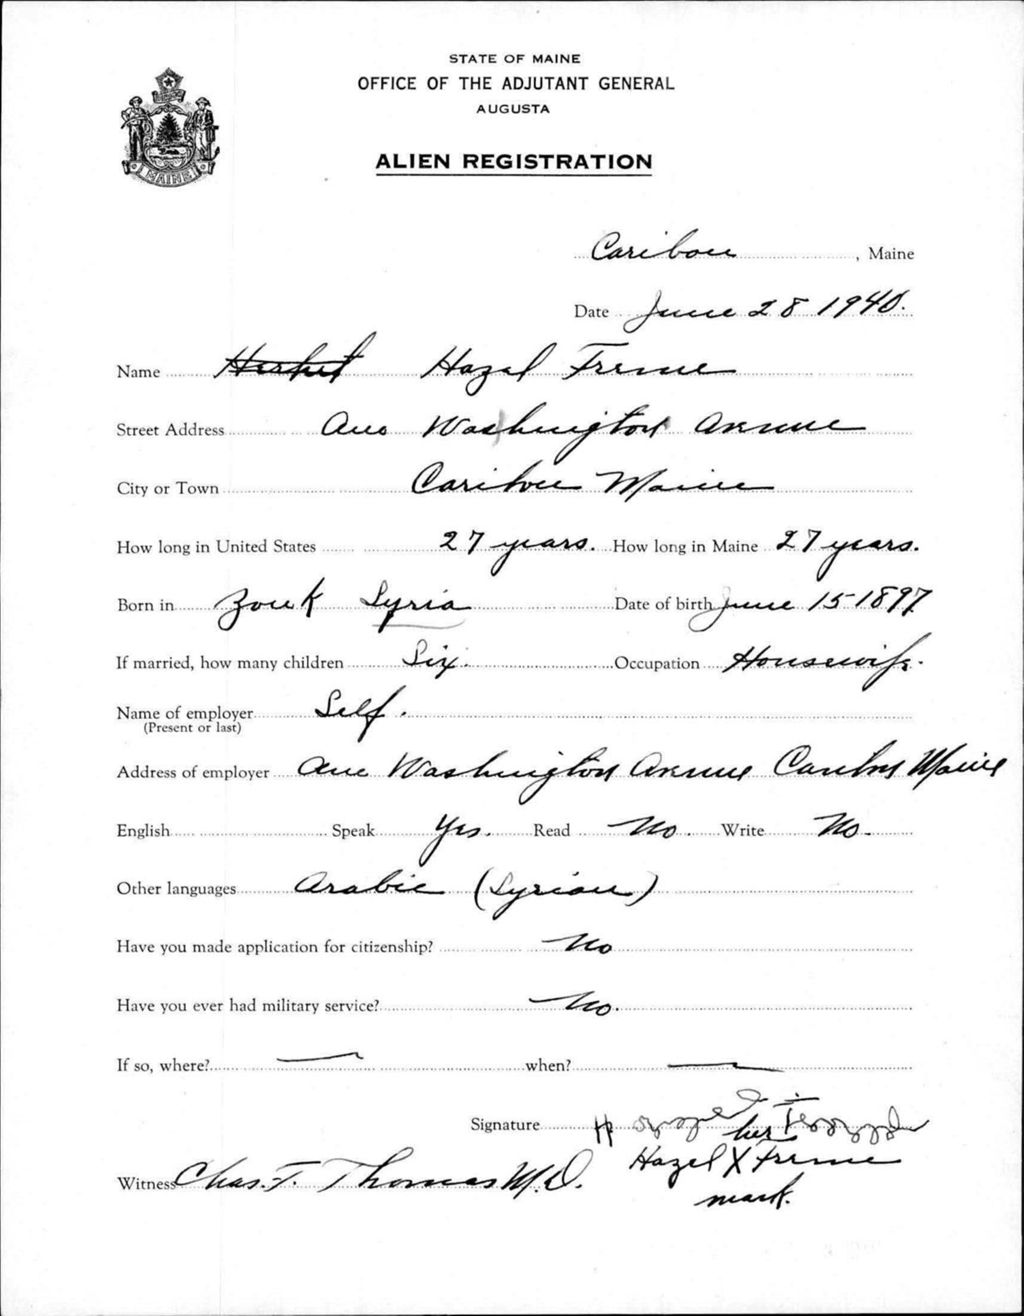 STATE OF MAINE
OFFICE OF THE ADJUTANT GENERAL
AUGUSTA
ALIEN REGISTRATION
MAINE
Caribou, Maine
Date June 28 1940.
Name Hazel Freme
Street Address Washington Avenue
City or Town Caribou Maine
How long in United States 27 years. How long in Maine 27 years.
Born in Zouk Syria Date of birth June 15-1897
If married, how many children Six. Occupation Housewife.
Name of employer Self.
(Present or last)
Address of employer Washington Avenue Caribou Maine
English Speak Yes. Read No. Write No.
Other languages Arabic (Syrian)
Have you made application for citizenship? No
Have you ever had military service? No.
If so, where? — when? —
Signature
her
Hazel X Freme
mark.
Witness Chas. F. Thomas M.D.